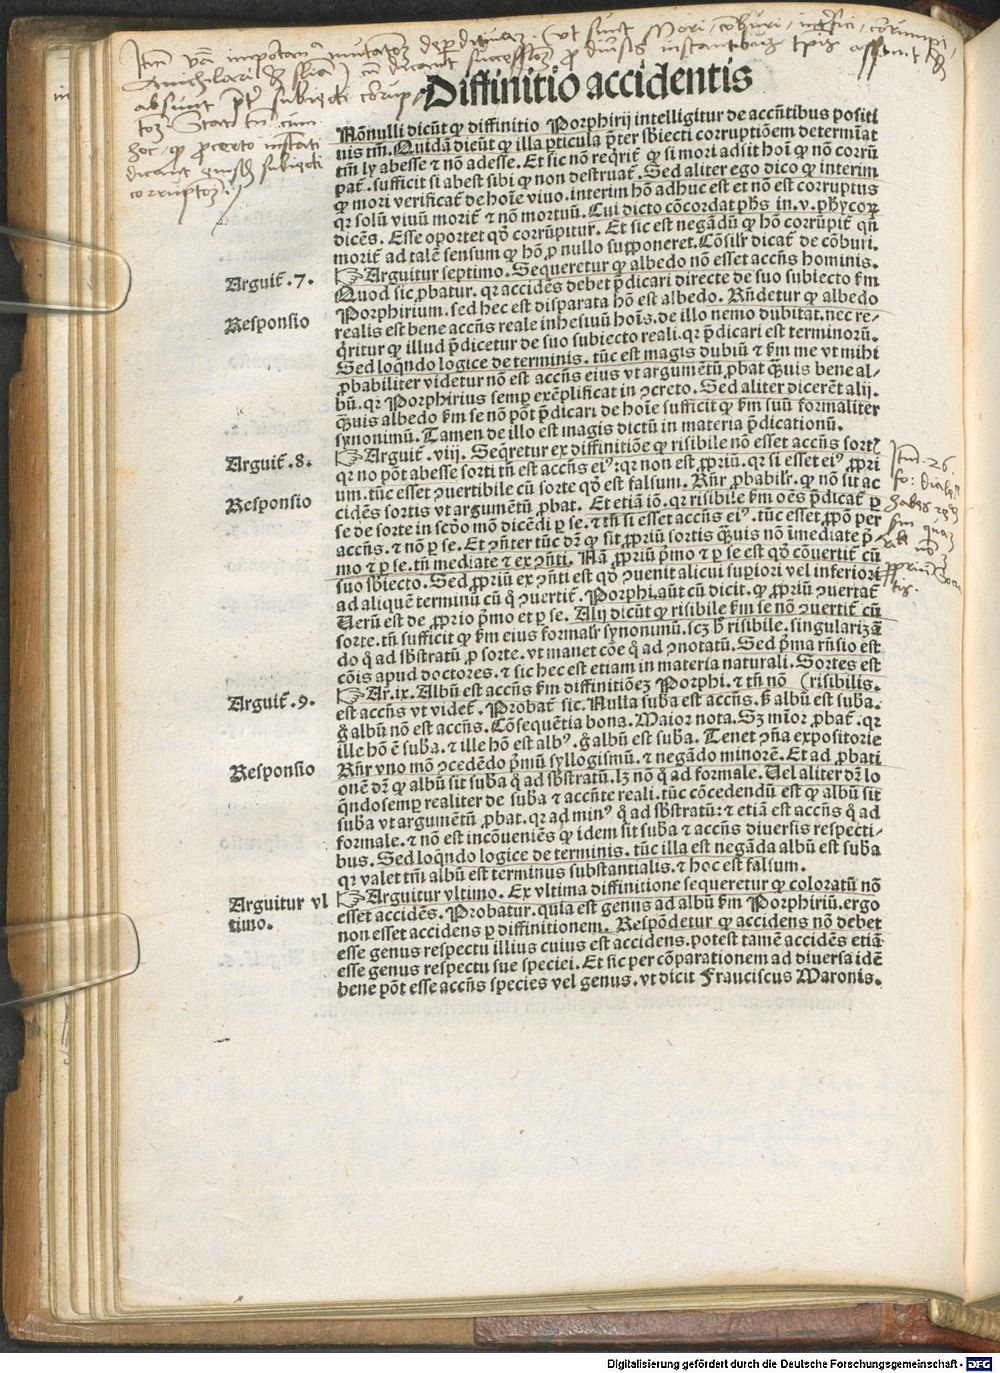 Diffinitio accidentis
Nõnulli dicũt ꝙ diffinitio Porphirij intelligitur de accñtibus positi
uis tm̃. Quidã dicũt ꝙ illa ꝑticula p̃ter sb̃iecti corruptiõem determĩat
tm̃ ly abesse ⁊ nõ adesse. Et sic nõ reqrit̃ ꝙ si mori adsit hoĩ ꝙ nõ corrũ
pat̃. sufficit si abest sibi ꝙ non destruat̃. Sed aliter ego dico ꝙ interim
ꝙ mori verificat̃ de hoĩe viuo. interim hõ adhuc est et nõ est corruptus
qr solũ viuũ morit̃ ⁊ nõ mortuũ. Cui dicto cõcordat ph̃s in. v. phycoꝝ
dicẽs. Esse oportet qd̃ corrũpitur. Et sic est negãdũ ꝙ hõ corrũpit̃ qñ
morit̃ ad talẽ sensum ꝙ hõ ꝓ nullo supponeret. Cõsilr̃ dicat̃ de cõburi.
Arguit̃ .7.
☞Arguitur septimo. Sequeretur ꝙ albedo nõ esset accñs hominis.
Quod sic ꝓbatur. qr accidẽs debet p̃dicari directe de suo subiecto km̃
Responsio
Porphirium. sed hec est disparata hõ est albedo. Rñdetur ꝙ albedo
realis est bene accñs reale inhesiuũ hoĩs. de illo nemo dubitat. nec re-
q̃ritur ꝙ illud p̃dicetur de suo subiecto reali. qr p̃dicari est terminorũ.
Sed loq̃ndo logice de terminis. tũc est magis dubiũ ⁊ km̃ me vt mihi
ꝓbabiliter videtur nõ est accñs eius vt argumẽtũ ꝓbat q̃uis bene al-
bũ. qr Porphirius semꝑ exẽplificat in ↄcreto. Sed aliter dicerẽt alij.
q̃uis albedo km̃ se nõ põt p̃dicari de hoĩe sufficit ꝙ km̃ suũ formaliter
synonimũ. Tamen de illo est magis dictũ in materia p̃dicationũ.
Arguit̃ .8.
☞Arguit̃. viij. Seq̃retur ex diffinitiõe ꝙ risibile nõ esset accñs sort̃
qr nõ põt abesse sorti tñ est accñs eiꝰ: qr non est ꝓpriũ. qr si esset eiꝰ ꝓpri
um. tũc esset ↄuertibile cũ sorte qd̃ est falsum. Rñr ꝓbabilr̃. ꝙ nõ sit ac
Responsio
cidẽs sortis vt argumẽtũ ꝓbat. Et etiã iõ. qr risibile km̃ oẽs p̃dicat̃ ꝑ
se de sorte in scdõ mõ dicẽdi ꝑ se. ⁊ tñ si esset accñs eiꝰ. tũc esset ꝓpõ per
accñs. ⁊ nõ ꝑ se. Et ↄñter tũc dr̃ ꝙ sit ꝓpriũ sortis q̃uis nõ ĩmediate p̃
mo ⁊ ꝑ se. tñ mediate ⁊ ex ↄñti. Nã ꝓpriũ p̃mo ⁊ ꝑ se est qd̃ cõuertit̃ cũ
suo sb̃iecto. Sed ꝓpriũ ex ↄñti est qd̃ ↄuenit alicui suꝑiori vel inferiori
ad aliquẽ terminũ cũ q̃ ↄuertit̃. Porphi. aũt cũ dicit. ꝙ ꝓpriũ ↄuertat̃
Verũ est de ꝓprio p̃mo et ꝑ se. Alij dicũt ꝙ risibile km̃ se nõ ↄuertit̃ cũ
sorte. tñ sufficit ꝙ km̃ eius formalr̃ synonimũ. scz h̃ risibile. singularizã
do q̃ ad sb̃stratũ ꝓ sorte. vt manet cõe q̃ ad ↄnotatũ. Sed p̃ma rñsio est
cõis apud doctores. ⁊ sic hec est etiam in materia naturali. Sortes est
Arguit̃ .9.
☞Ar. ix. Albũ est accñs km̃ diffinitiõez Porphi. ⁊ tñ nõ (risibilis.
est accñs vt videt̃. Probat̃ sic. Nulla suba est accñs. s̃ albũ est suba.
g̃ albũ nõ est accñs. Cõsequẽtia bona. Maior nota. Sz mĩor ꝓbat̃. qr
ille hõ ẽ suba. ⁊ ille hõ est albꝰ. g̃ albũ est suba. Tenet ↄña expositorie
Responsio
Rñr vno mõ ↄcedẽdo p̃mũ syllogismũ. ⁊ negãdo minorẽ. Et ad ꝓbati
onẽ dr̃ ꝙ albũ sit suba q̃ ad sb̃stratũ. lz nõ q̃ ad formale. Vel aliter dr̃ lo
q̃ndo semꝑ realiter de suba ⁊ accñte reali. tũc cõcedendũ est ꝙ albũ sit
suba vt argumẽtũ ꝓbat. qr ad minꝰ q̃ ad sb̃stratũ: ⁊ etiã est accñs q̃ ad
formale. ⁊ nõ est incõueniẽs ꝙ idem sit suba ⁊ accñs diuersis respecti-
bus. Sed loq̃ndo logice de terminis. tũc illa est negãda albũ est suba
qr valet tm̃ albũ est terminus substantialis. ⁊ hoc est falsum.
Arguitur vl
timo.
☞Arguitur vltimo. Ex vltima diffinitione sequeretur ꝙ coloratũ nõ
esset accidẽs. Probatur. quia est genus ad albũ km̃ Porphiriũ. ergo
non esset accidens ꝑ diffinitionem. Respõdetur ꝙ accidens nõ debet
esse genus respectu illius cuius est accidens. potest tamẽ accidẽs etiã
esse genus respectu sue speciei. Et sic per cõparationem ad diuersa idẽ
bene põt esse accñs species vel genus. vt dicit Franciscus Maronis.
Digitalisierung gefördert durch die Deutsche Forschungsgemeinschaft - DFG